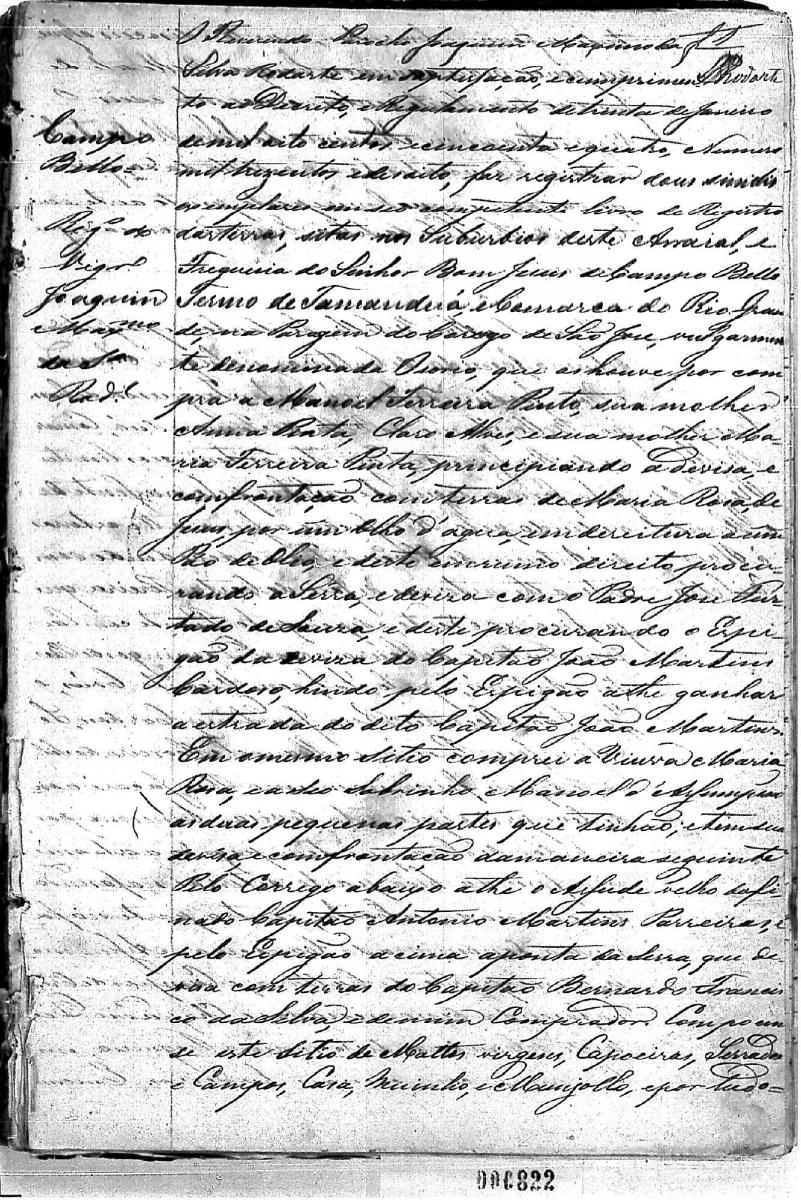 O Reverendo Joaquim Maximo da
Silva Rodarte em satisfação, e cumprimen Rodarte
to ao Decreto, e Regulamento de trinta de Janeiro
Campo
Bello=
de mil oito centos e cincoenta e quatro, Numero
mil trezentos e desoito, faz registrar dous
exemplares no seo competente livro de Registro
das terras, sitas nos Suburbios deste Arraial, e
Freguesia do Senhor Bom Jesus de Campo Bello
Termo de Tamanduá, e Comarca do Rio Gran
de, na Paragem do Corego de São José, vulgarmen
te denominada Ourio, que as houve por com
pra a Manoel Ferreira Pinto, sua molher
Regº do
Vigrº
Joaquim
Maxmo
da Sa
Rode
Anna Pinta, Claro Alves, e sua molher Ma
ria Ferreira Pinta, principiando a devisa, e
comfrontação com terras de Maria Rosa de
Jesus, por um Olho d'agua, em dereitura a um
Páo de Oleo, e deste em rumo direito procu
rando a Serra, e devisa com o Padre José Fur
tado de Souza, e deste procurando o Espi
gão da devisa do Capitão João Martins
Cardoso, hindo pelo Espigão athe ganhar
a estrada do dito Capitão João Martins.
Em o mesmo sitio comprei a Viuva Maria
Rosa, e a seo Sobrinho Manoel d'Assumpcao
as duas pequenas partes que tinhão, e tem sua
devisa e comfrontação da maneira seguinte
Pelo Corrego abaixo athe o Assude velho do fi
nado Capitão Antonio Martins Parreiras, e
pelo Espigão acima a ponta da Serra, que de
visa com terras do Capitão Bernardo Francis
co da Silva, e de mim Comprador. Compoem
se este Sitio de Mattos virgens, Capoeiras, Serrados
e Campos, Casa, Muinho, e Munjollo, e por tudo=
000822